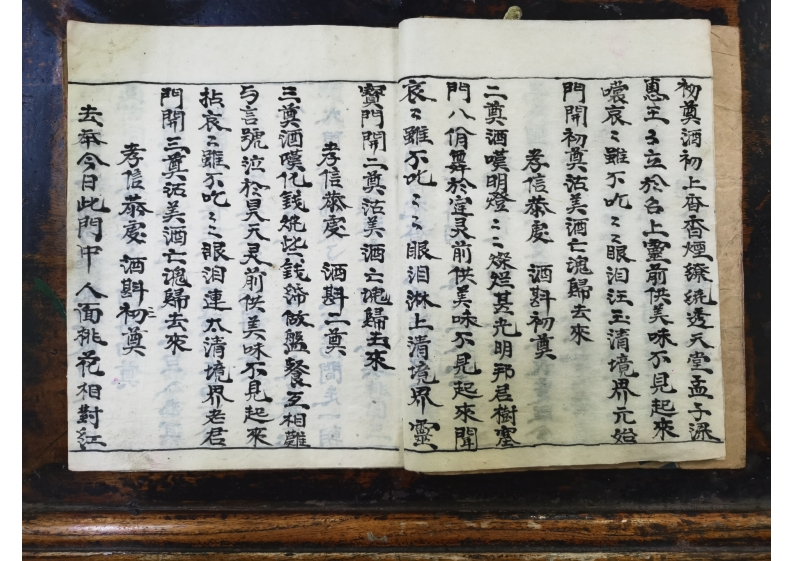 初奠酒初上香香煙繚繞透天堂孟子深
惠王〻立於台上靈前供美味不見起來
噥哀〻雖不吃〻〻眼泪汪玉清境界元始
門開初奠沽美酒亡魂歸去來
孝信恭處 酒斟初奠
二奠酒嘆明燈〻〻燦烂其光明邦君樹塞
門八佾舞於庭灵前供美味不見起來聞
哀〻雖不吃〻〻眼泪淋上清境界靈
寶門開二奠沽美酒亡魂歸去來
孝信恭處〻 酒斟二奠
三奠酒嘆化錢燒些錢綿做盤餐互相難
与言號泣於旻天灵前供美味不見起來
拈哀〻雖不吃〻〻眼泪蓮太清境界老君
門開三奠沽美酒亡魂歸去來
孝信恭處 酒斟初奠
去年今日此門中人面桃花相對紅